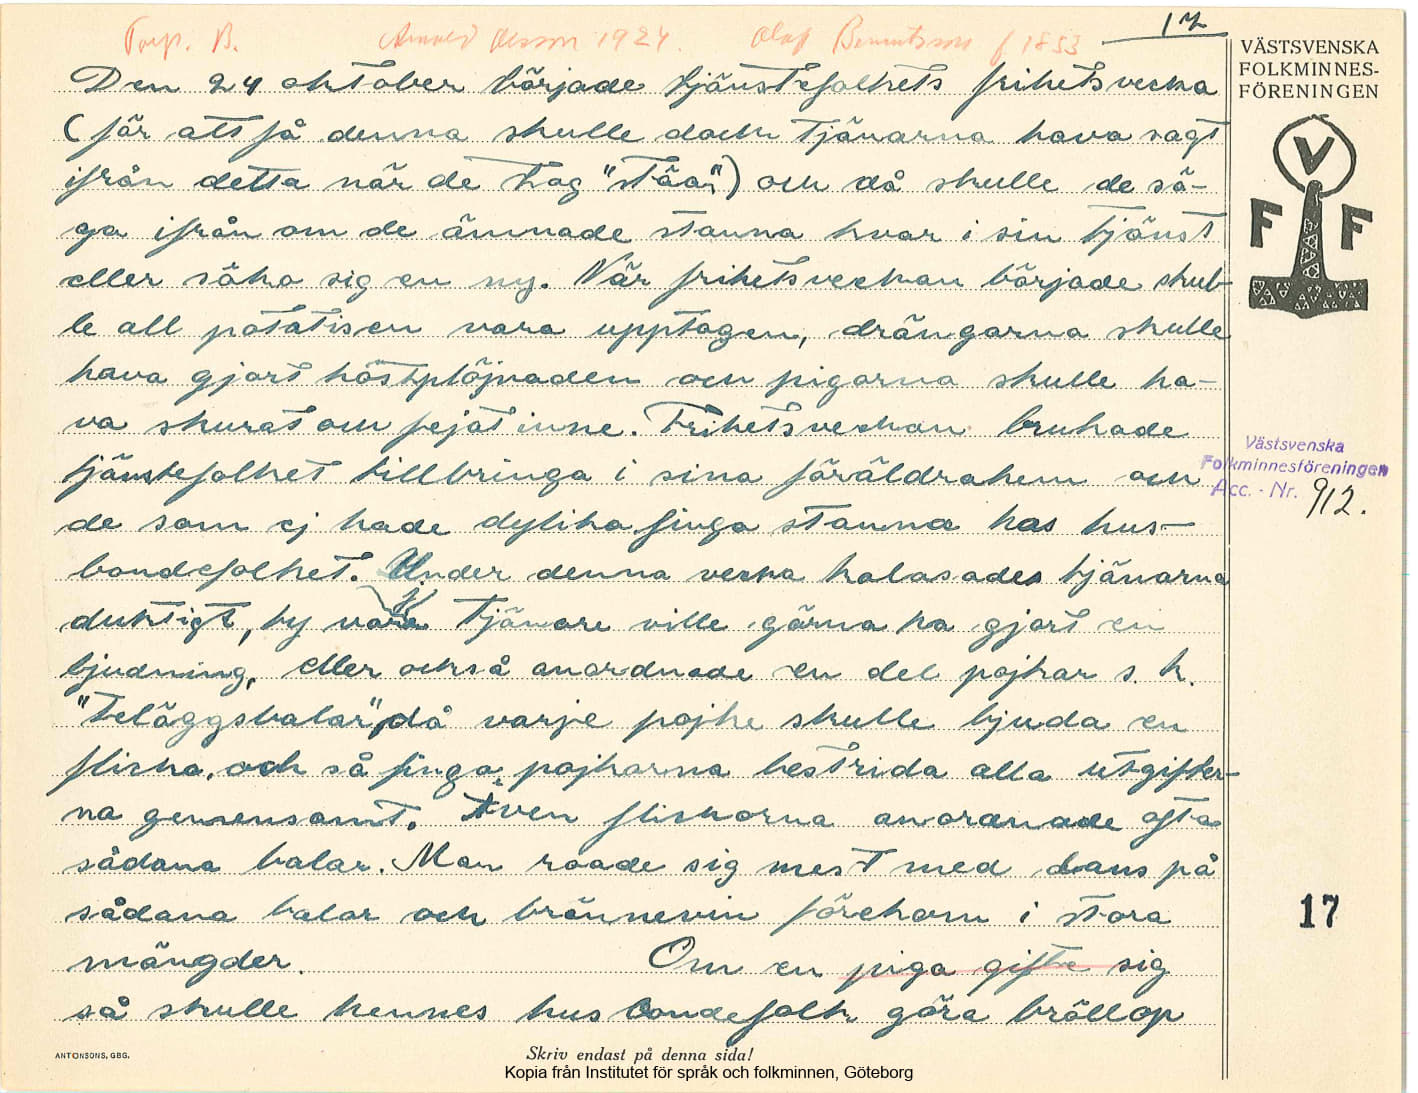 17
Torp. B. Arnold Olsson 1924. Olof Berntsson f 1853
VÄSTSVENSKA
FOLKMINNES-
FÖRENINGEN
V
F F
Den 24 oktober började tjänstefolkets frihetsvecka
(för att få denna skulle dock tjänarna hava sagt
ifrån detta när de tog "stäan") och då skulle de sä-
ga ifrån om de ämnade stanna kvar i sin tjänst
eller söka sig en ny. När frihetsveckan började skul-
le all potatisen vara upptagen, drängarna skulle
hava gjort höstplöjnaden och pigorna skulle ha-
va skurat och fejat inne. Frihetsveckan brukade
tjänstefolket tillbringa i sina föräldrahem och
de som ej hade dylika finga stanna hos hus-
bondefolket. Under denna vecka kalasades tjänarna
duktigt, ty varje tjänare ville gärna ha gjort en
bjudning, eller också anordnade en del pojkar s. k.
"teläggsbalar", då varje pojke skulle bjuda en
flicka, och så finga pojkarna bestrida alla utgifter-
na gemensamt. Även flickorna anordnade ofta
sådana balar. Man roade sig mest med dans på
sådana balar och brännevin förekom i stora
mängder. Om en piga gifte sig
så skulle hennes husbondefolk göra bröllop
Västsvenska
Folkminnesföreningen
Acc. - Nr. 912.
17
ANTONSONS, GBG.
Skriv endast på denna sida!
Kopia från Institutet för språk och folkminnen, Göteborg